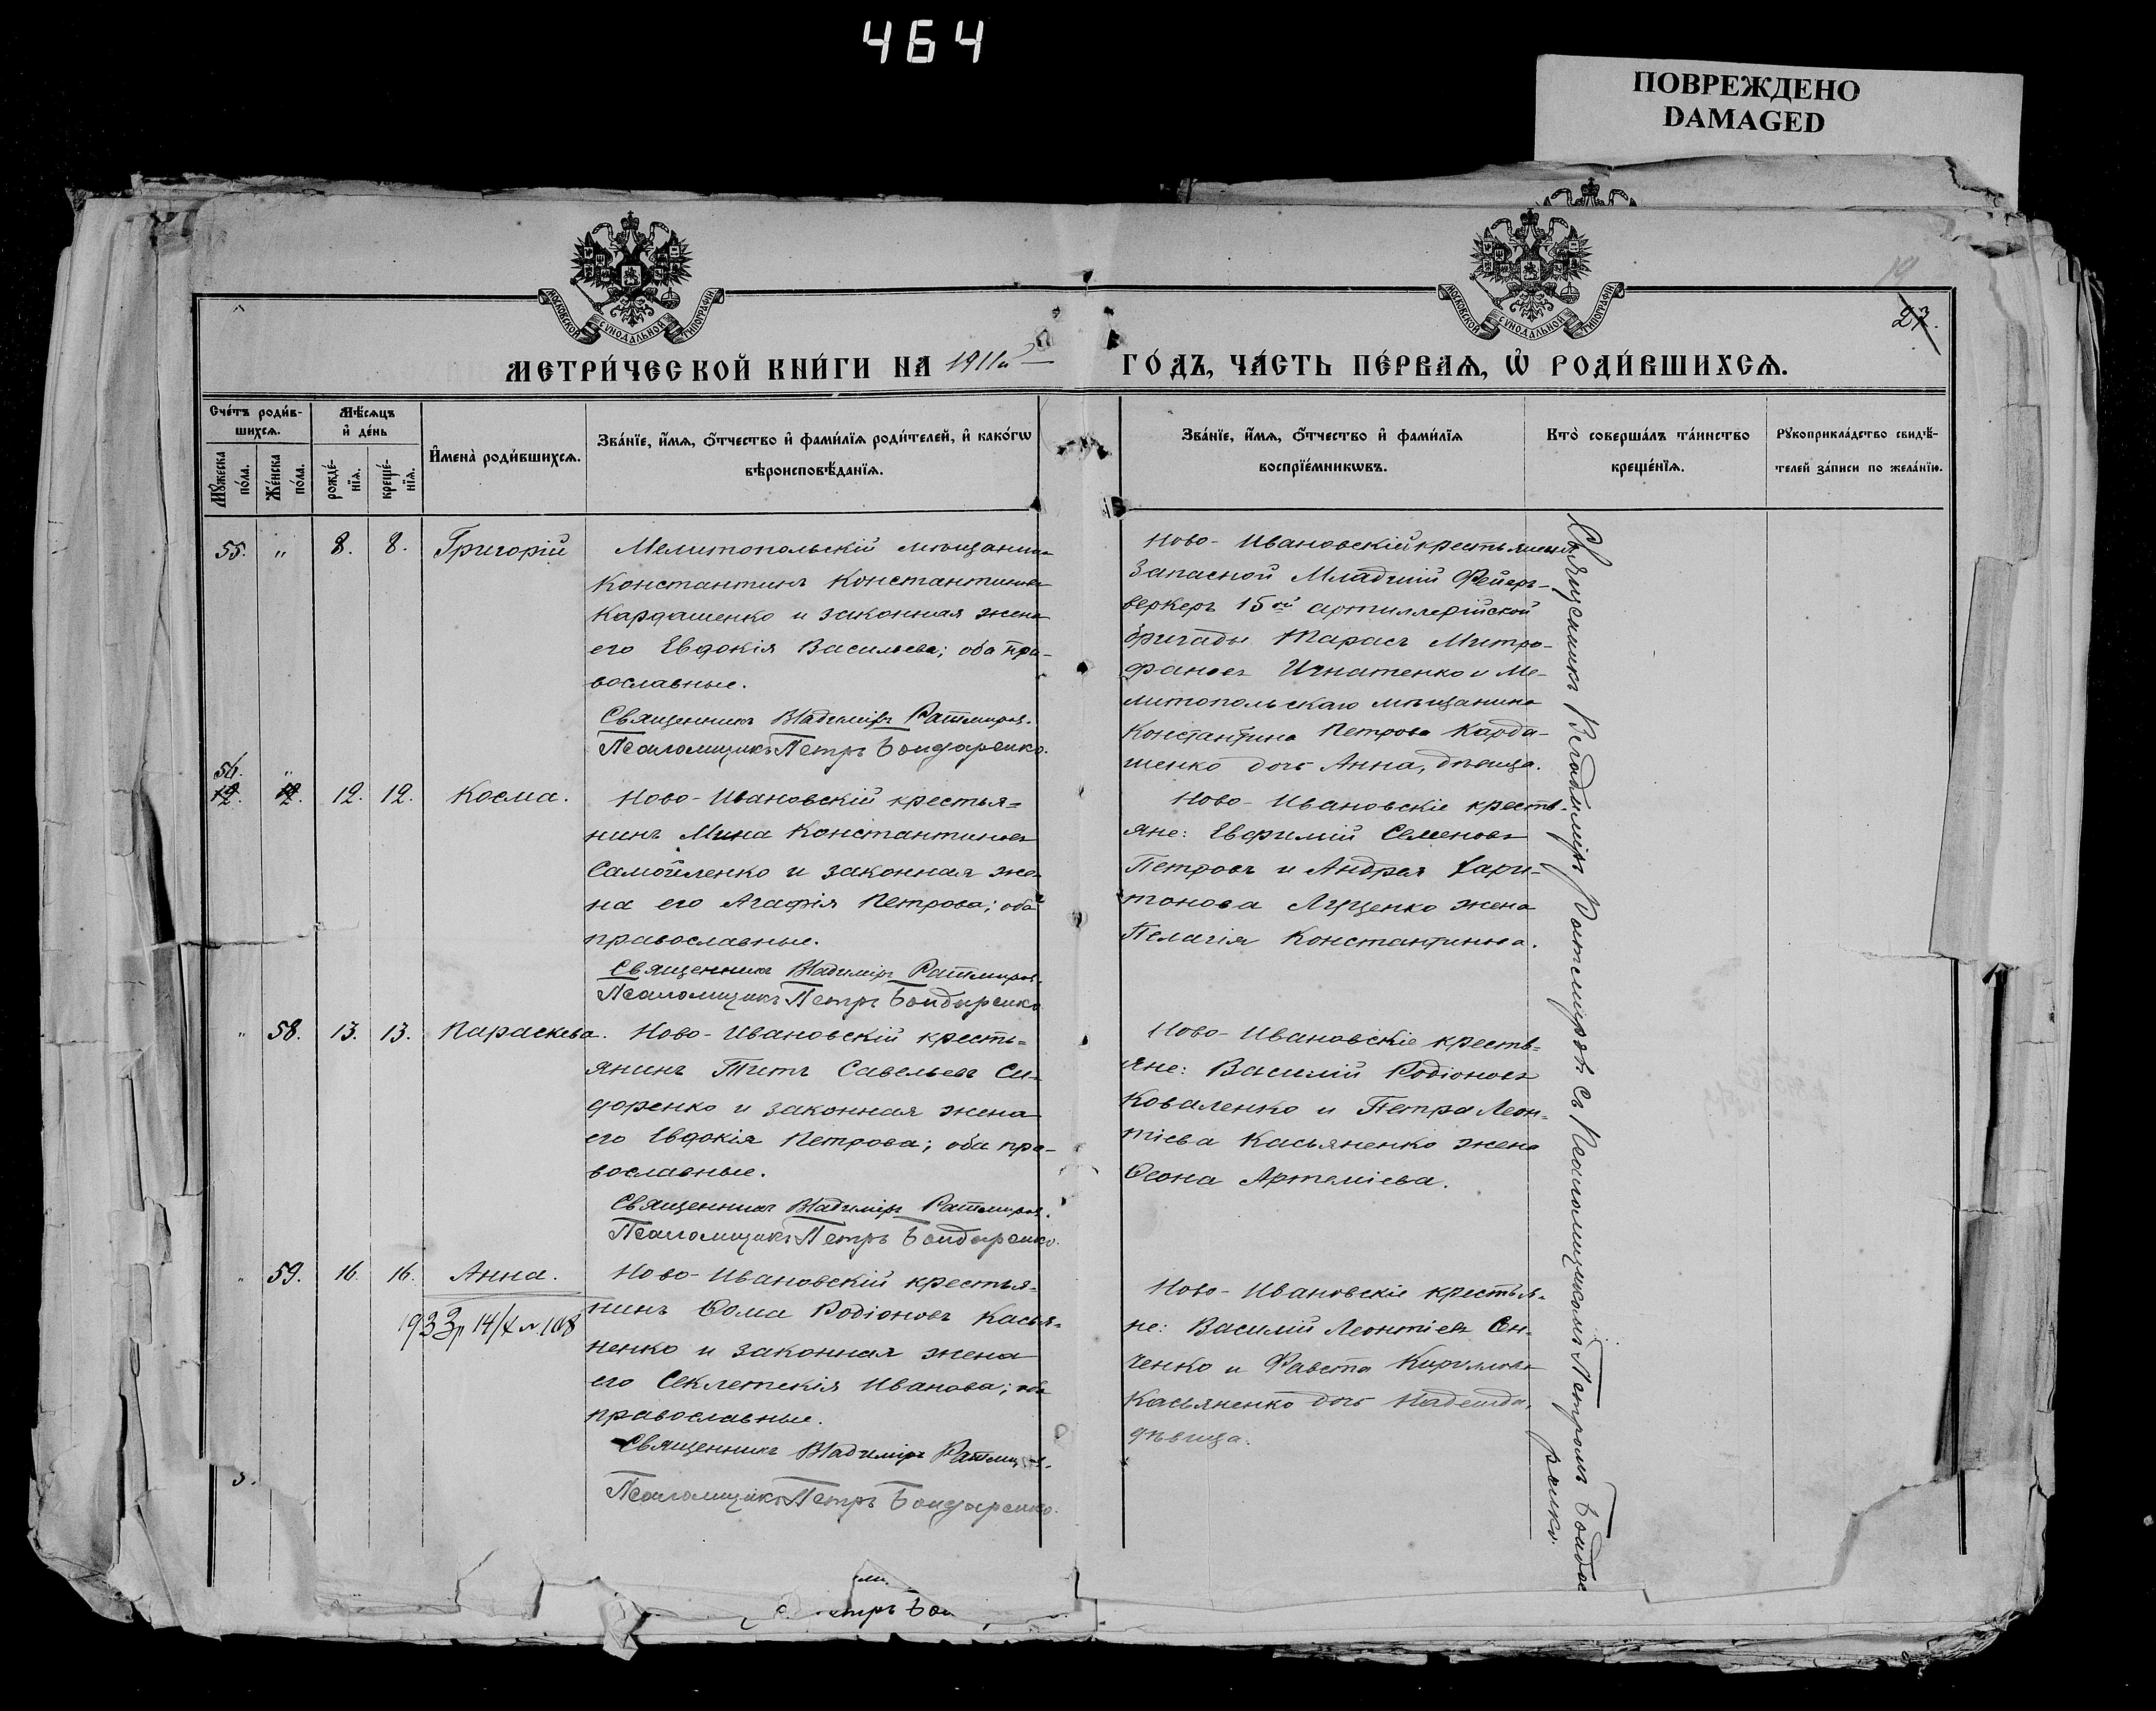 464
ПОВРЕЖДЕНО
DAMAGED
МОСКОВСКОЙ СУНОДАЛЬНОЙ ТИПОГРАФІИ
МОСКОВСКОЙ СУНОДАЛЬНОЙ ТИПОГРАФІИ
19
27.
МЕТРИ́ЧЕСКОЙ КНИ́ГИ НА 1911й
ГО́ДЪ, ЧА́СТЬ ПЕ́РВАѦ, Ѡ҆ РОДИ́ВШИХСѦ.
Сче́тъ роди́в-
шихсѧ.
Мꙋ́жеска по́ла.
Же́нска по́ла.
Мѣ́сѧцъ
и҆ де́нь
рожде́-
нїѧ.
креще́-
нїѧ.
И҆мена̀ роди́вшихсѧ.
Зва́нїе, и҆́мѧ, ѻ҆́тчество и҆ фами́лїѧ роди́телей, и҆ како́гѡ
вѣроисповѣ́данїѧ.
Зва́нїе, и҆́мѧ, ѻ҆́тчество и҆ фами́лїѧ
воспрїе́мникѡвъ.
Кто̀ соверша́лъ та́инство
креще́нїѧ.
Рꙋкоприкла́дство свидѣ́-
телей за́писи по жела́нїю.
55. " 8. 8. Григорій
Мелитопольскій мѣщанинъ
Константинъ Константиновъ
Кардашенко и законная жена
его Евдокія Васильева; оба пра-
вославные.
Священникъ Владиміръ Ратмировъ.
Псаломщикъ Петръ Бондаренко.
Ново-Ивановскій крестьянинъ
Запасной Младшій Фейер-
веркеръ 15ой артиллерійской
бригады Тарасъ Митро-
фановъ Игнатенко и Ме-
литопольскаго мѣщанина
Константина Петрова Карда-
шенко дочь Анна, дѣвица.
56. "
12. 12. 12. 12. Косма.
Ново-Ивановскій крестья-
нинъ Мина Константиновъ
Самойленко и законная же-
на его Агафія Петрова; оба
православные.
Священникъ Владиміръ Ратмировъ.
Псаломщикъ Петръ Бондаренко
Ново-Ивановскіе кресть-
яне: Евфимій Семеновъ
Петровъ и Андрея Хари-
тонова Луценко жена
Пелагія Константинова.
" 58. 13. 13. Параскева.
Ново-Ивановскій кресть-
янинъ Титъ Савельевъ Си-
доренко и законная жена
его Евдокія Петрова; оба пра-
вославные.
Священникъ Владиміръ Ратмировъ.
Псаломщикъ Петръ Бондаренко.
Ново-Ивановскіе кресть-
яне: Василій Родіоновъ
Коваленко и Петра Леон-
тіева Касьяненко жена
Ѳеона Артеміева.
" 59. 16. 16. Анна.
1933 14/X № 108
Ново-Ивановскій крестья-
нинъ Ѳома Родіоновъ Касья-
ненко и законная жена
его Секлетекія Иванова; оба
православные.
Священникъ Владиміръ Ратмировъ.
Псаломщикъ Петръ Бондаренко.
Ново-Ивановскіе крестья-
не: Василій Леонтіевъ Он-
ченко и Фавста Кириллова
Касьяненко дочь Надежда,
дѣвица.
Священникъ Владиміръ Ратмировъ съ Псаломщикомъ Петромъ Бонда-
ренко.
етръ Бон